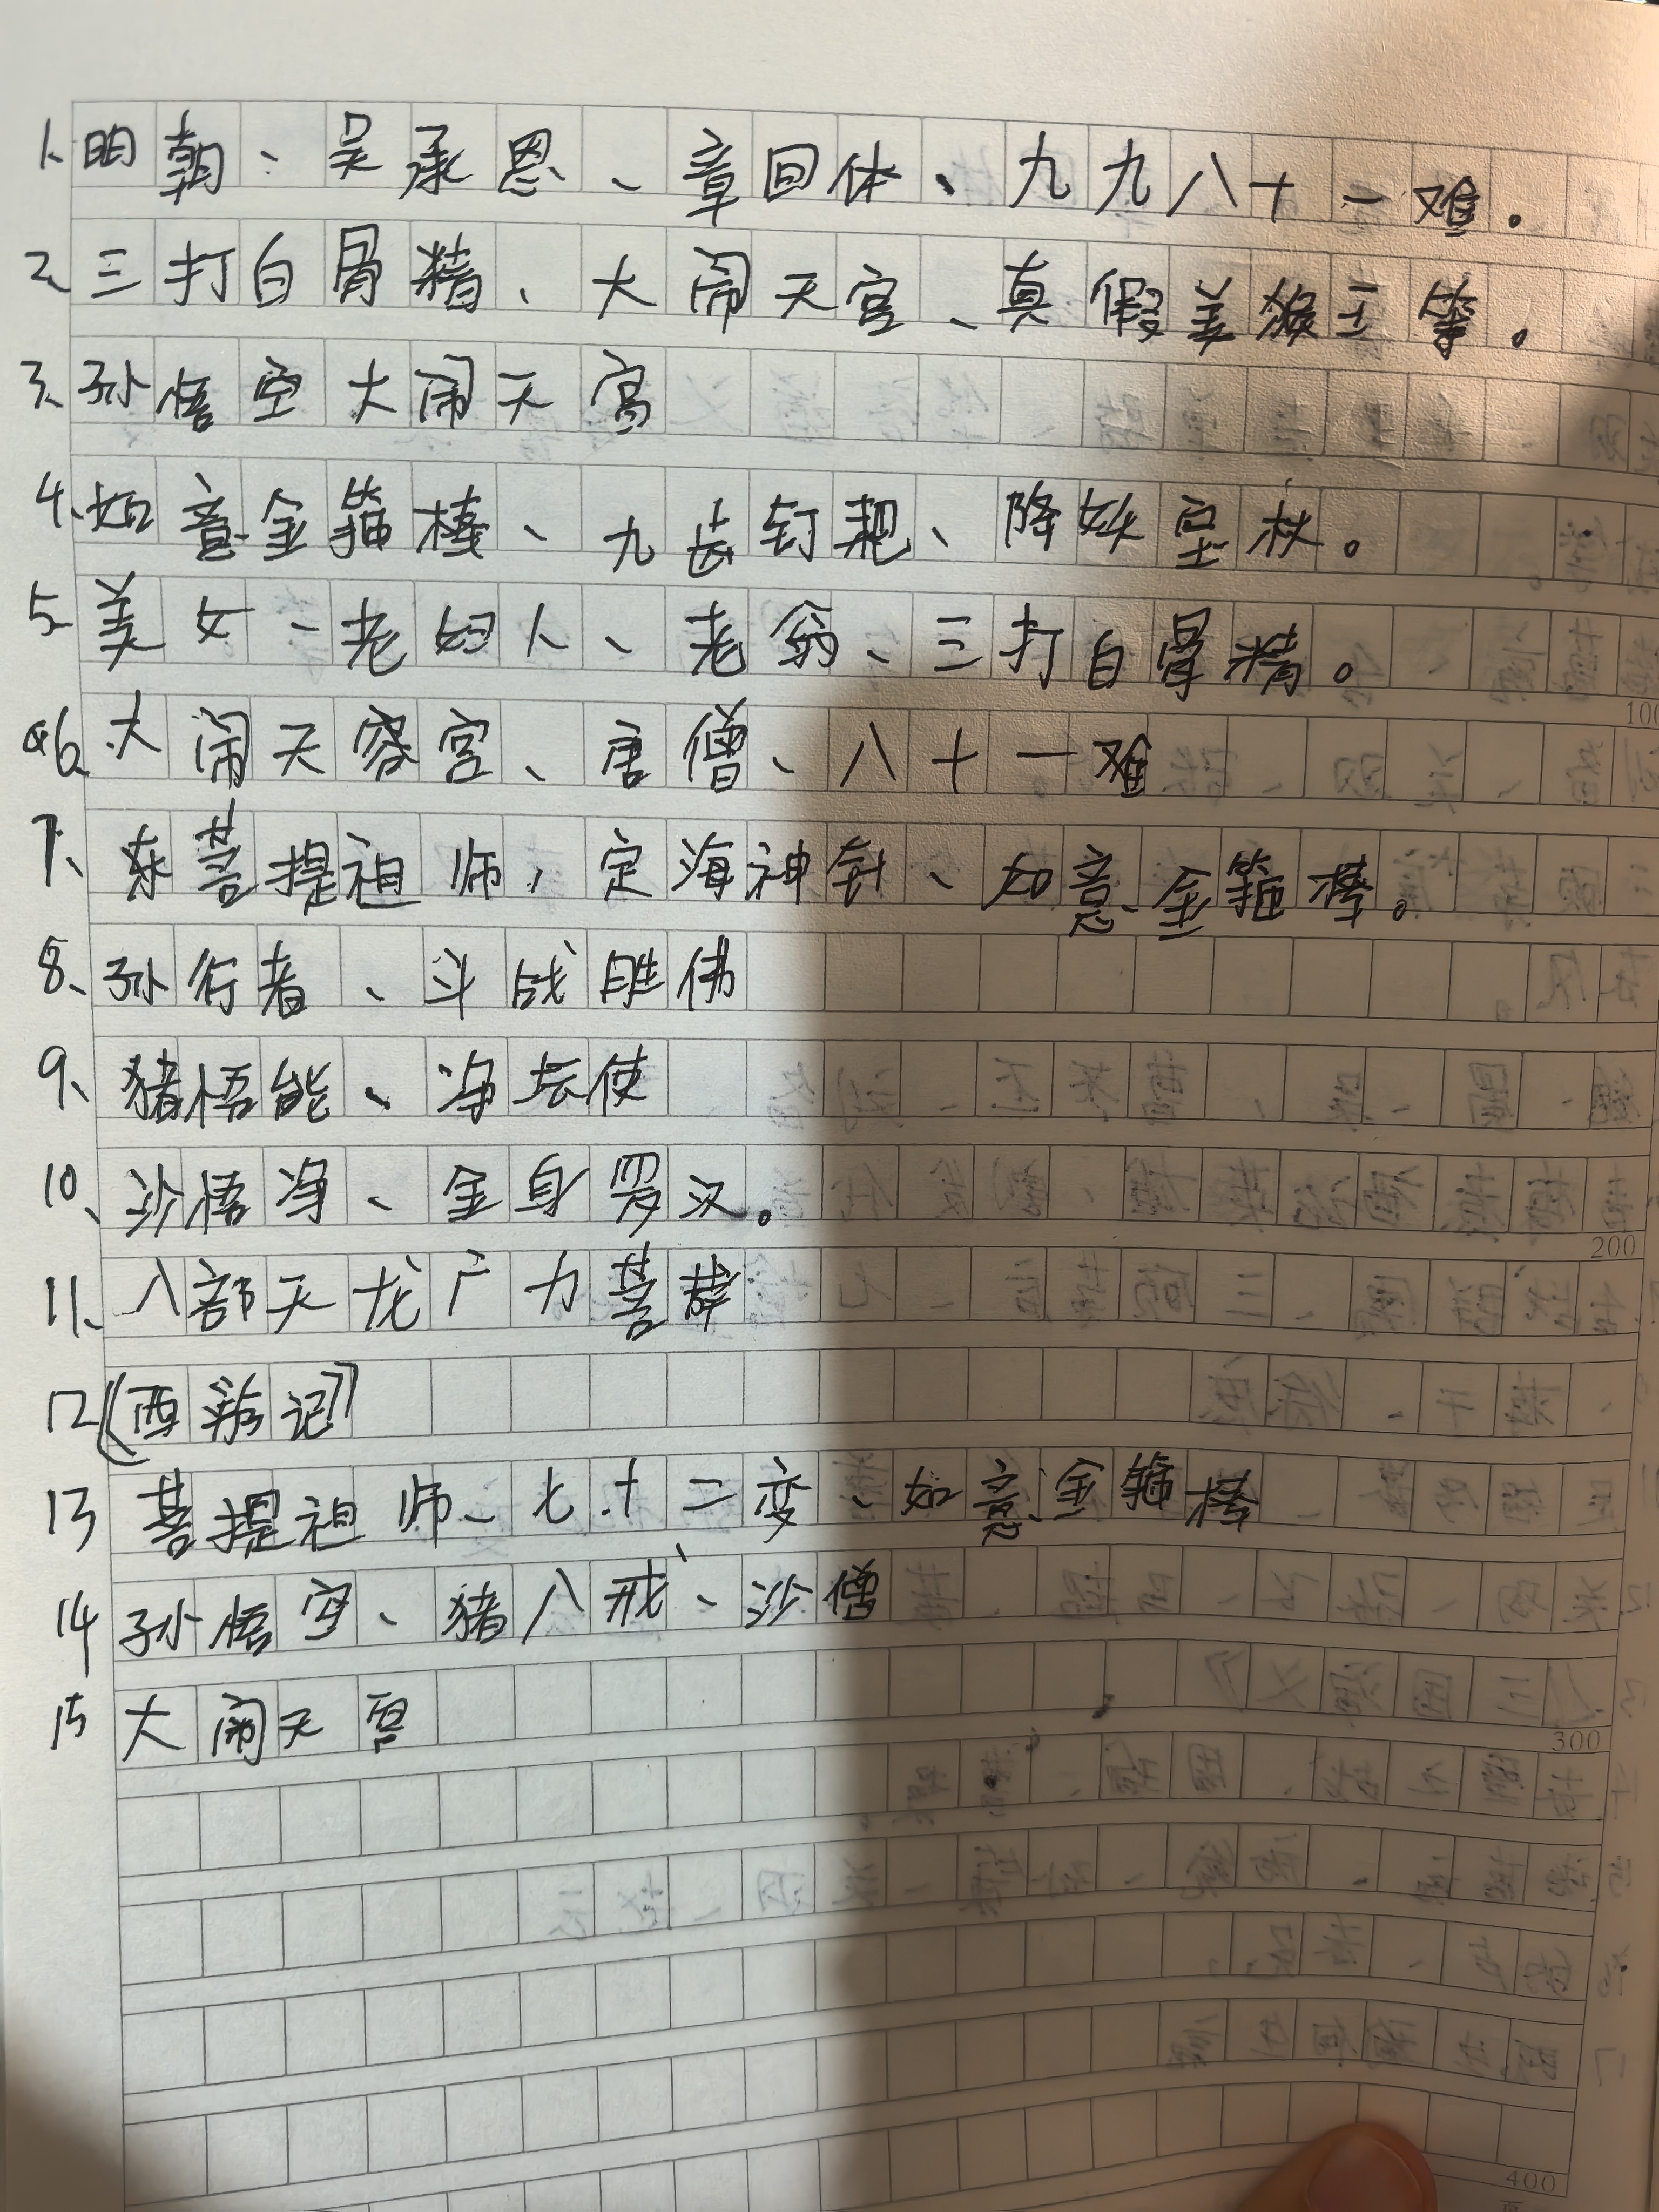 1、明朝、吴承恩、章回体、九九八十一难。
2、三打白骨精、大闹天宫、真假美猴王等。
3、孙悟空大闹天宫
4、如意金箍棒、九齿钉耙、降妖宝杖。
5、美女、老妇人、老翁、三打白骨精。
6、大闹天宫、唐僧、八十一难
7、菩提祖师，定海神针、如意金箍棒。
8、孙行者、斗战胜佛
9、猪悟能、净坛使
10、沙悟净、金身罗汉。
11、八部天龙广力菩萨
12《西游记》
13 菩提祖师、七十二变、如意金箍棒
14 孙悟空、猪八戒、沙僧
15 大闹天宫
100
200
300
400